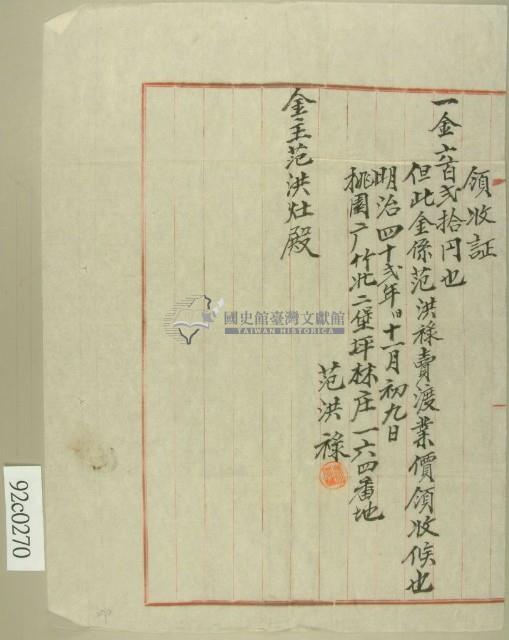 領收証
一金六百弍拾円也
但此金係范洪祿賣渡業價領收候也
明治四十弍年旧十一月初九日
桃園廳竹北二堡坪林庄一六四番地
范洪祿
金主范洪灶殿
國史館臺灣文獻館
TAIWAN HISTORICA
92c0270